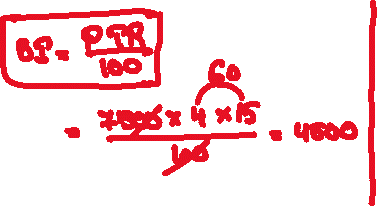 SI = PTR
100
60
= 7500 × 4 × 15 = 4500
100